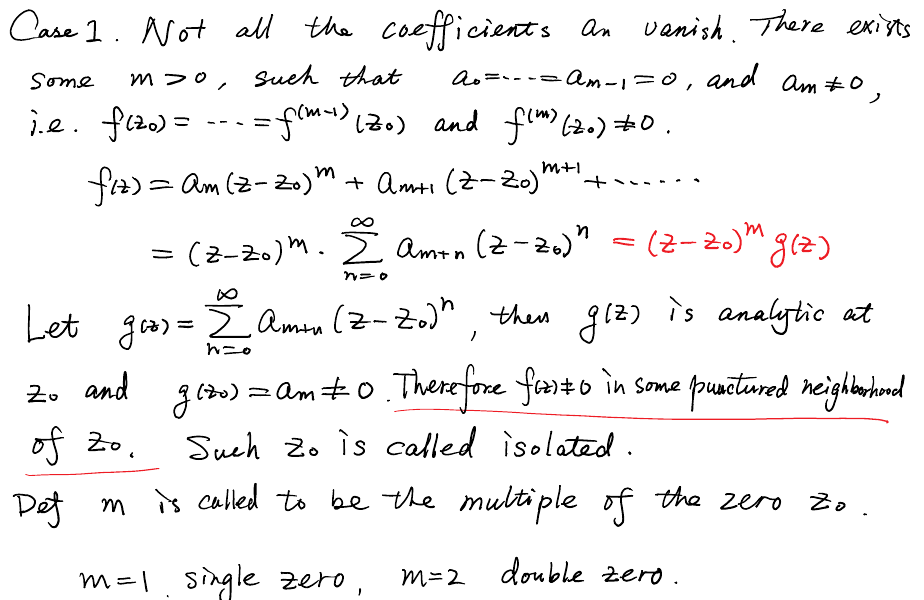 Case 1. Not all the coefficients an vanish. There exists
some m>0, such that a₀=---=aₘ₋₁=0, and aₘ≠0,
i.e. f(z₀)= ---=f⁽ᵐ⁻¹⁾(z₀) and f⁽ᵐ⁾(z₀)≠0.
f(z)=aₘ(z-z₀)ᵐ + aₘ₊₁(z-z₀)ᵐ⁺¹+------
= (z-z₀)ᵐ · ∑ₙ₌₀^∞ aₘ₊ₙ(z-z₀)ⁿ = (z-z₀)ᵐ g(z)
Let g(z)= ∑ₙ₌₀^∞ aₘ₊ₙ(z-z₀)ⁿ, then g(z) is analytic at
z₀ and g(z₀)=aₘ≠0. Therefore f(z)≠0 in some punctured neighborhood
of z₀. Such z₀ is called isolated.
Def m is called to be the multiple of the zero z₀.
m=1 single zero, m=2 double zero.